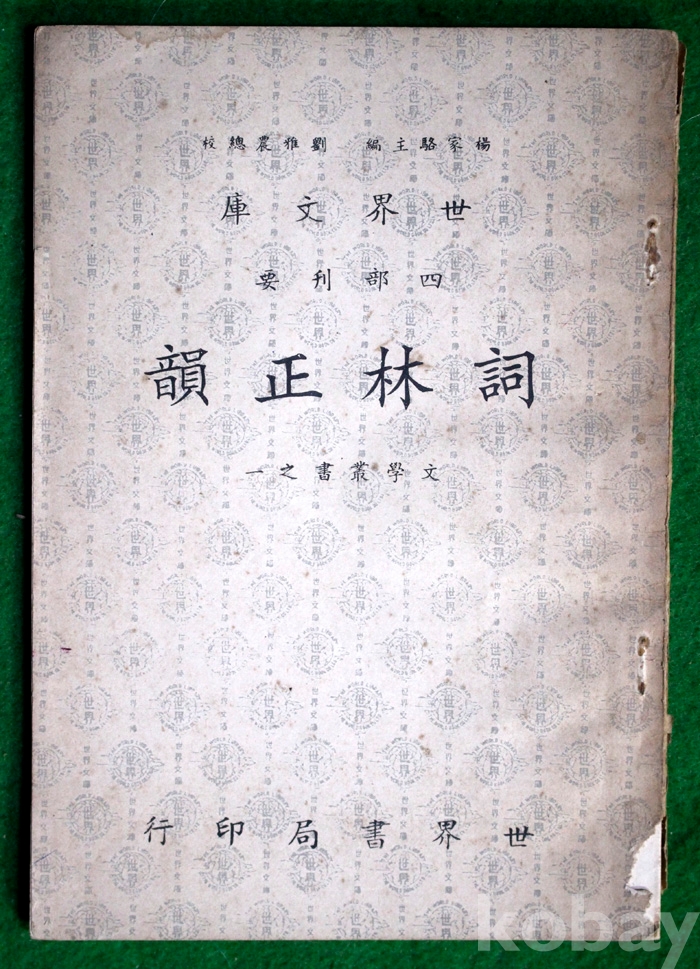 楊家駱主編 劉雅農總校
世界文庫
四部刊要
詞林正韻
文學叢書之一
世界書局印行
kobay